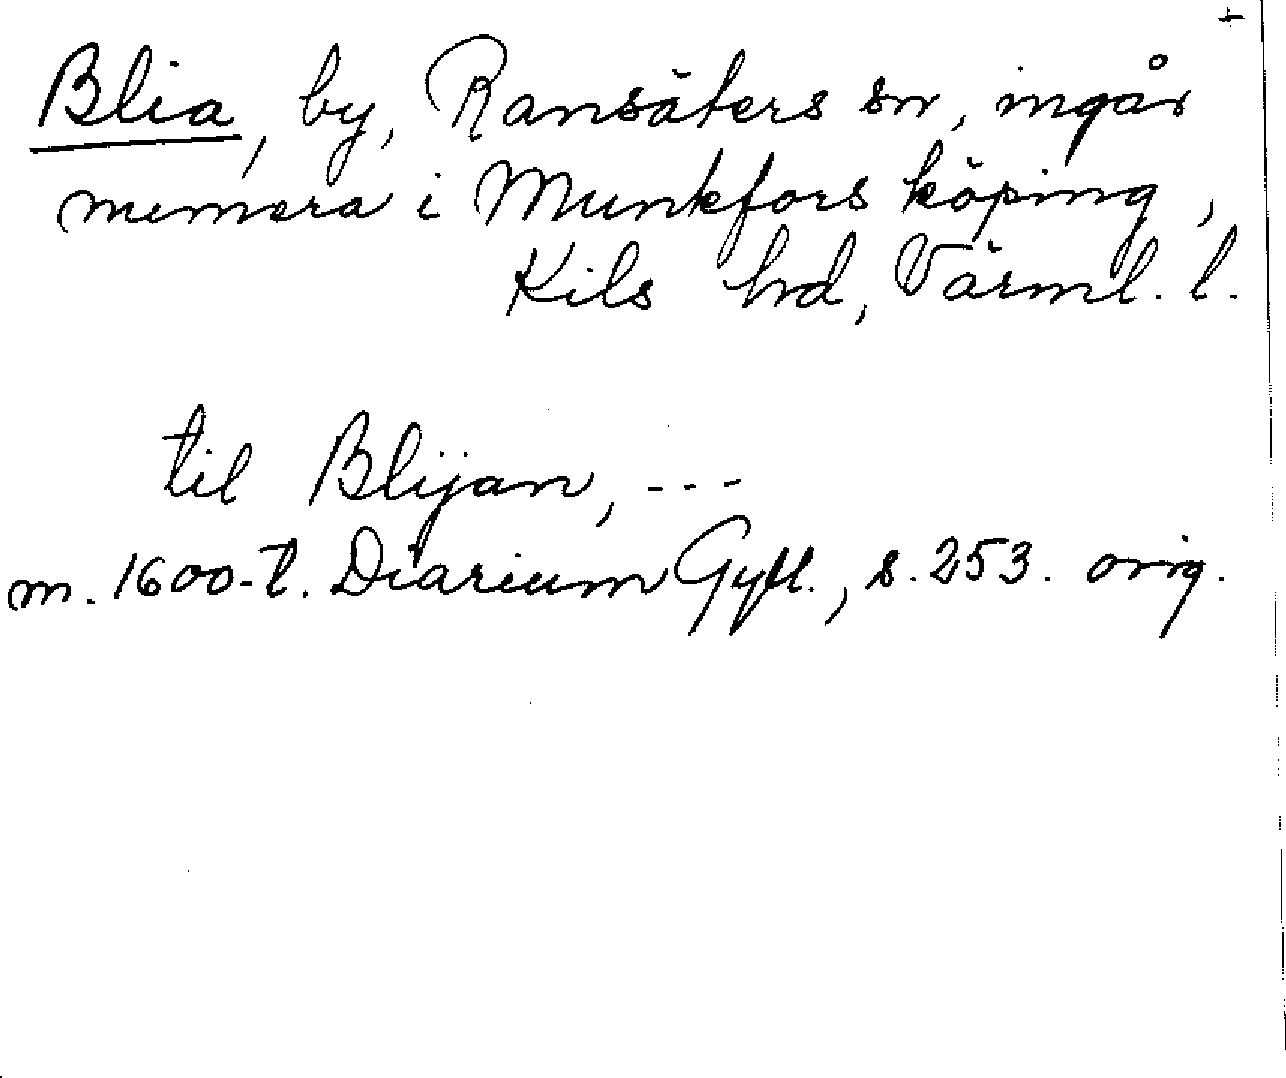 +
Blia, by, Ransäters sn, ingår
numera i Munkfors köping,
Kils hd, Värml. l.
til Blijan, ---
m. 1600-t. Diarium Gyll., s. 253. orig.